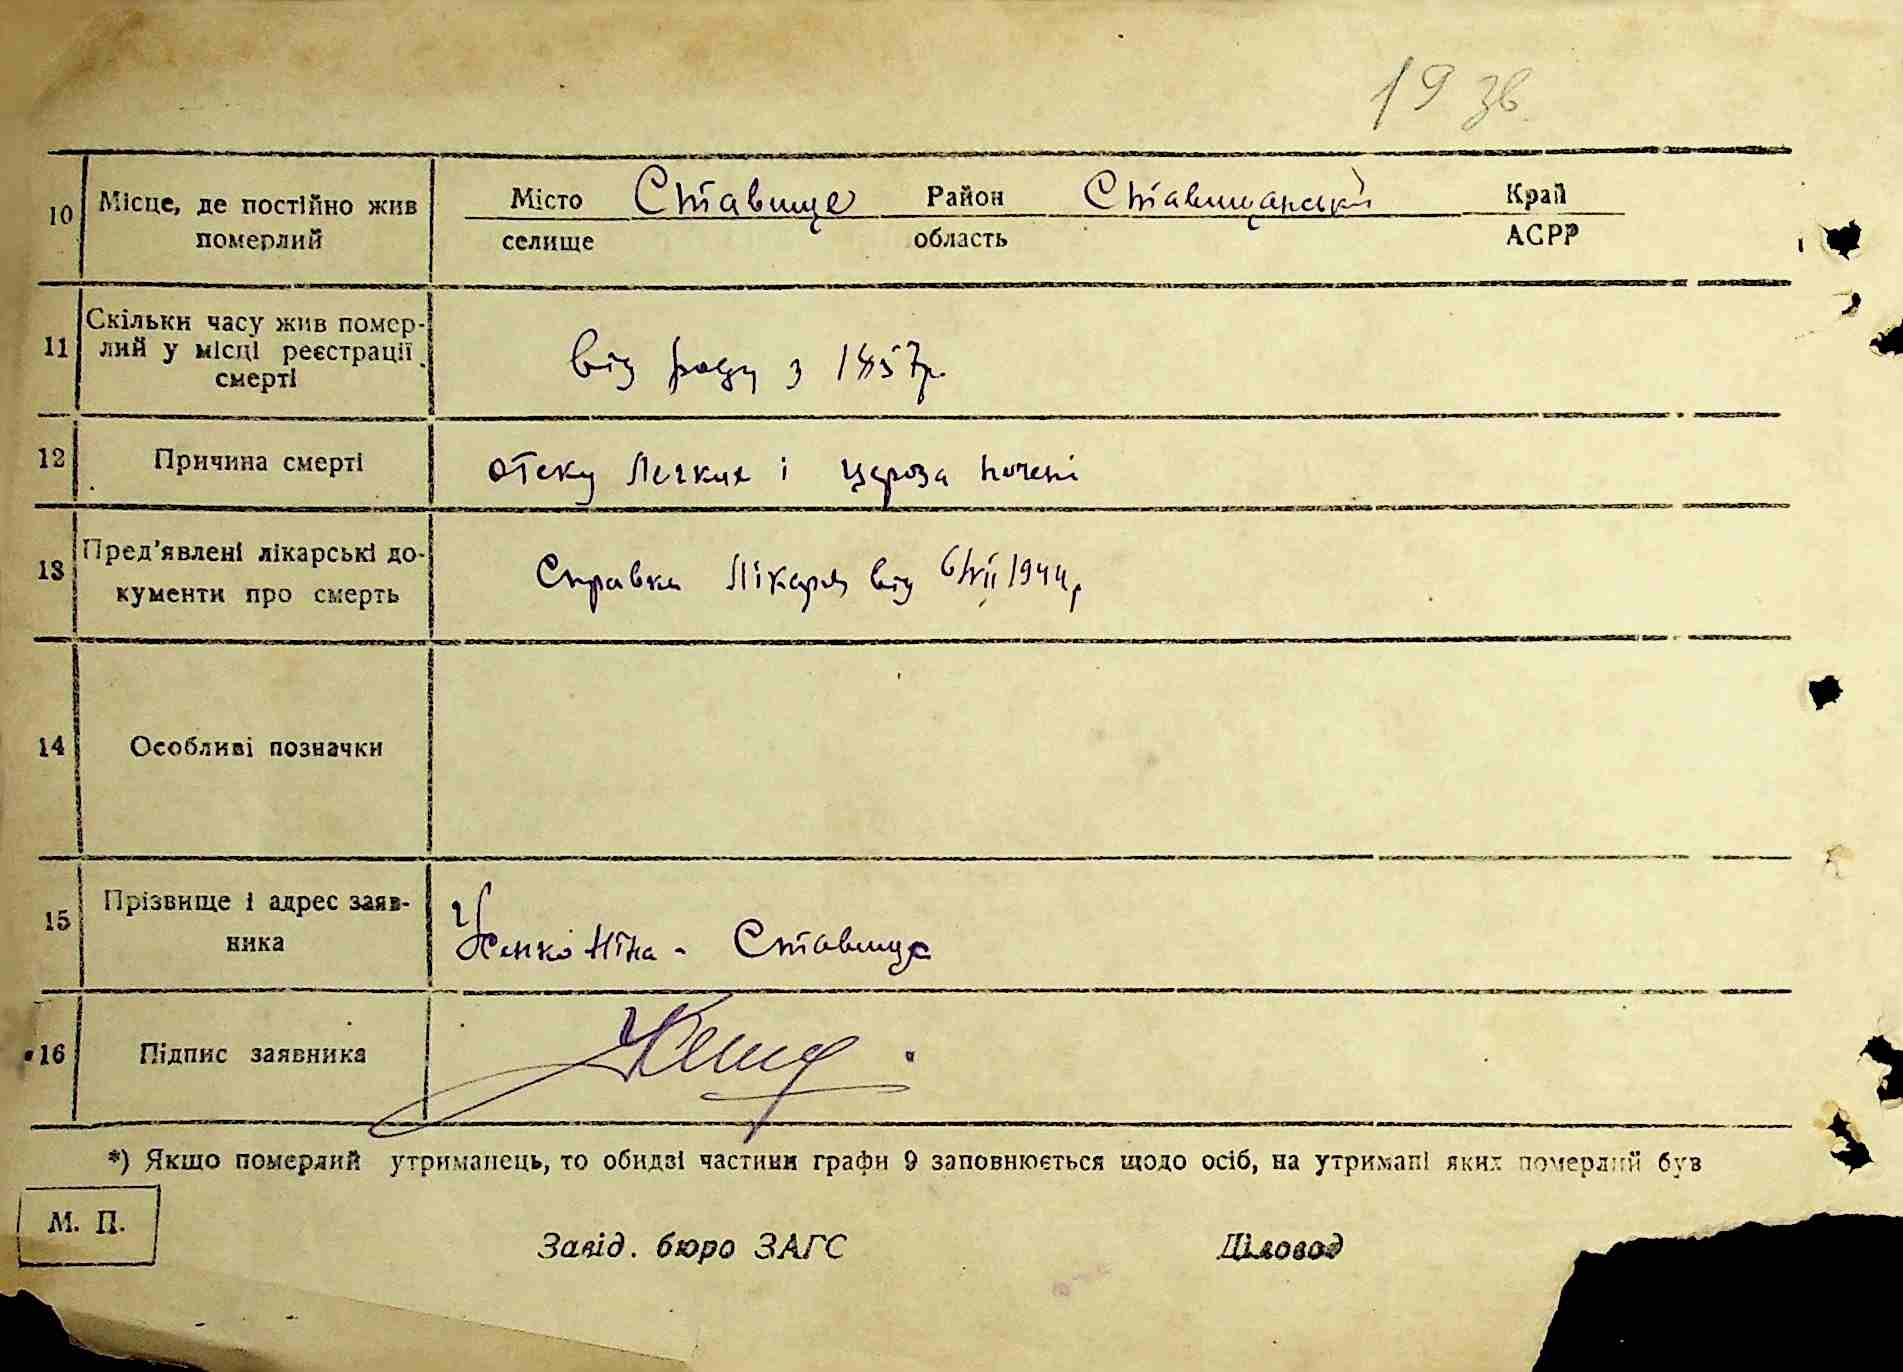 19 зв.
10 Місце, де постійно жив Місто Ставище Район Ставищанський Край
померлий селище область АСРР
Скільки часу жив помер-
11 лий у місці реєстрації від роду з р.
смерті
12 Причина смерті отеку Легких і цероза почені
13 Пред'явлені лікарські до- Справка Лікаря від 6/VII 1944 р
кументи про смерть
14 Особливі позначки
15 Прізвище і адрес заяв- Усенко Ніна - Ставище
ника
16 Підпис заявника
*) Якщо померлий утриманець, то обидві частини графи 9 заповнюється щодо осіб, на утримані яких померлий був
М. П.
Завід. бюро ЗАГС Діловод